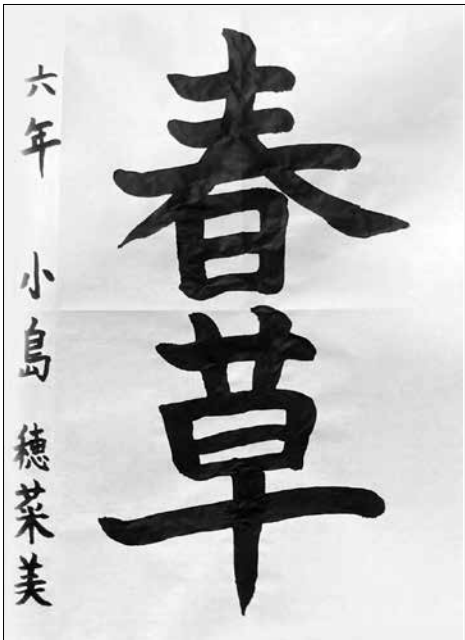 春草
六年 小島 穂菜美